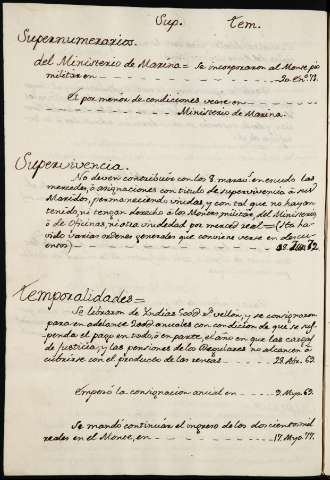 Sup. tem.
Supernumerarios.
del Ministerio de Marina = Se incorporaron al Monte pio
militar en - - - - 20. En.º 73.
El por menor de condiciones verse en - - - -
Ministerio de Marina.
Supervivencia.
No deven contribuir con los 8. marav.s en escudo las
mercedes, ó asignaciones con titulo de supervivencia á sus
Maridos, permaneciendo viudas, y con tal que no hayan
tenido, ni tengan derecho á los Montes militar, del Ministerio,
ó de Oficinas, ni otra viudedad por merced real = (Ha ha-
vido varias ordenes generales que conviene verse en descu-
entos) - - - - 72.
Temporalidades =
Se libraron de Yndias 500@ r.s vellon, y se consignaron
para en adelante 200@ anuales con condicion de que se sus-
penda el pago en todo, ó en parte, el año en que las cargas
de Justicia, y las pensiones de los Regulares no alcancen á
cubrirse con el producto de las rentas. - - - 28. Abr. 69.
Empezó la consignacion anual en - - - 9. Myo. 69.
Se mandó continuár el ingreso de los doscientos mil
reales en el Monte, en - - - 17. Myo. 77.